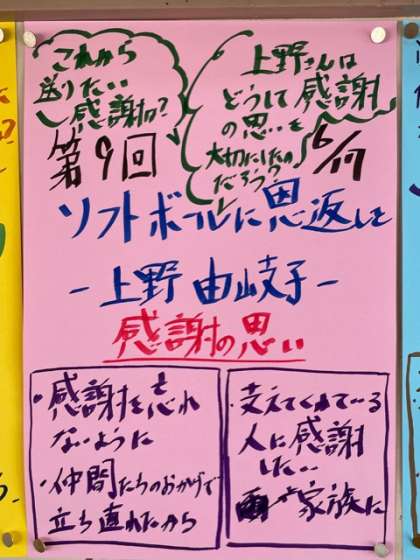 これから
送りたい
感謝は?
上野さんは
どうして感謝
の思いを
大切にしたの
だろう?
第9回
6/17
ソフトボールに恩返しを
-上野 由岐子-
感謝の思い
・感謝を忘れ
ないように
・仲間たちのおかげで
立ち直れたから
・支えてくれている
人に感謝
したい
家族に